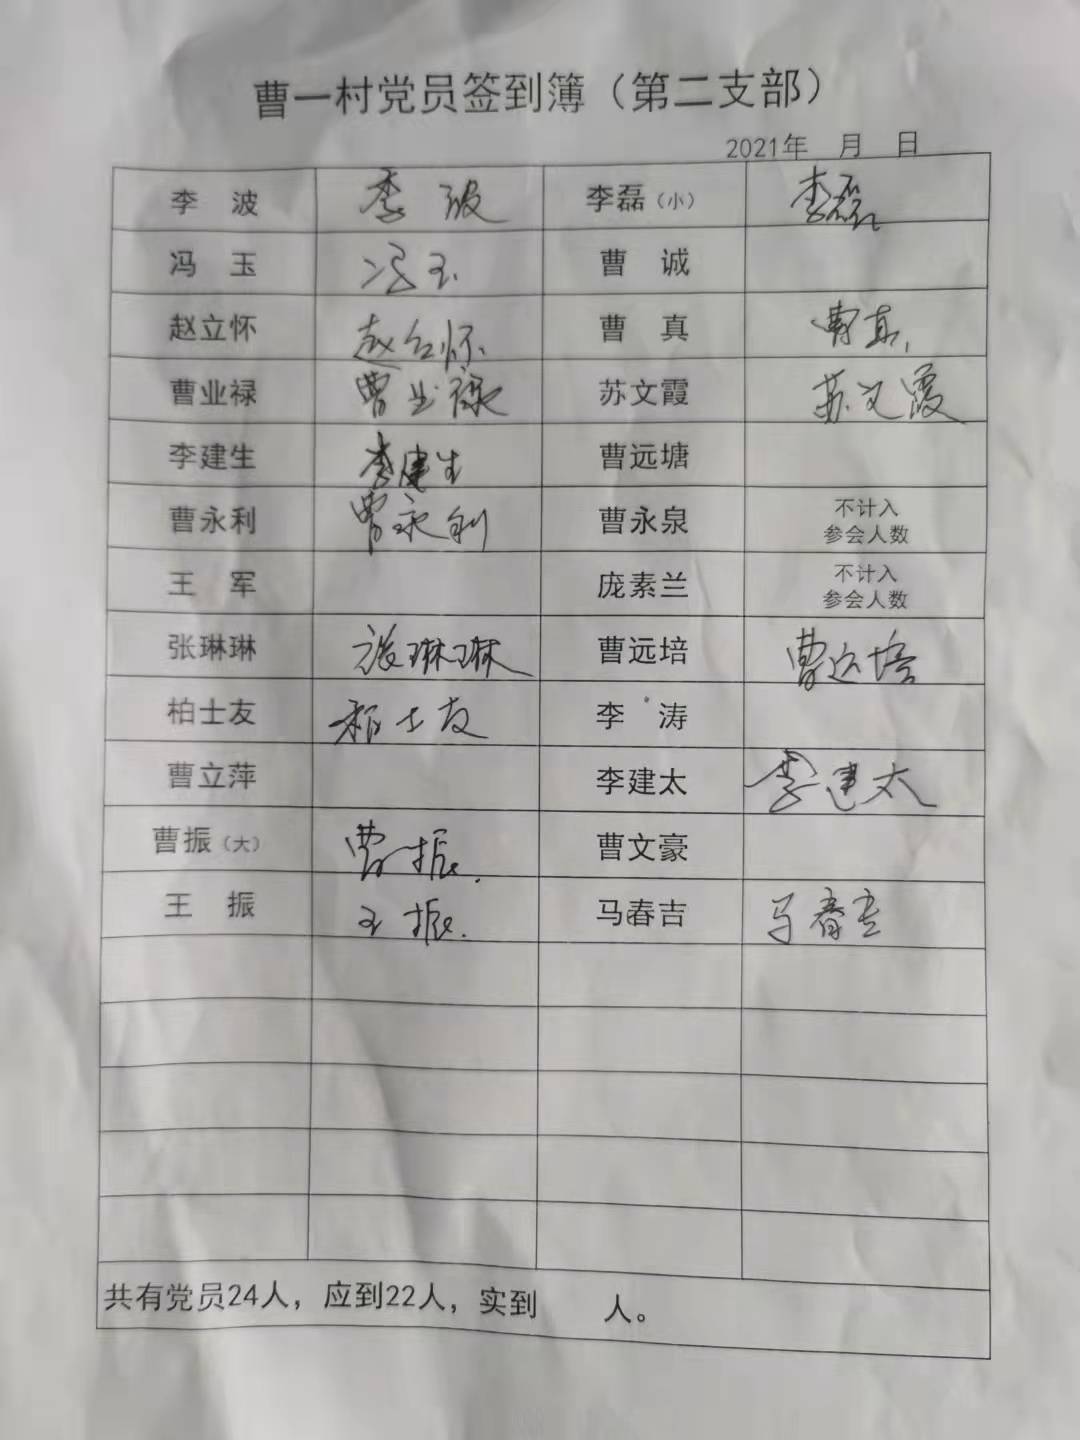 曹一村党员签到簿（第二支部）
2021年 月 日
李 波 李波 李磊（小） 李磊
冯 玉 冯玉 曹 诚
赵立怀 赵立怀 曹 真 曹真
曹业禄 曹业禄 苏文霞 苏文霞
李建生 李建生 曹远塘
曹永利 曹永利 曹永泉 不计入
参会人数
王 军 庞素兰 不计入
参会人数
张琳琳 张琳琳 曹远培 曹远培
柏士友 柏士友 李 涛
曹立萍 李建太 李建太
曹振（大） 曹振 曹文豪
王 振 王振 马春吉 马春吉
共有党员24人，应到22人，实到 人。